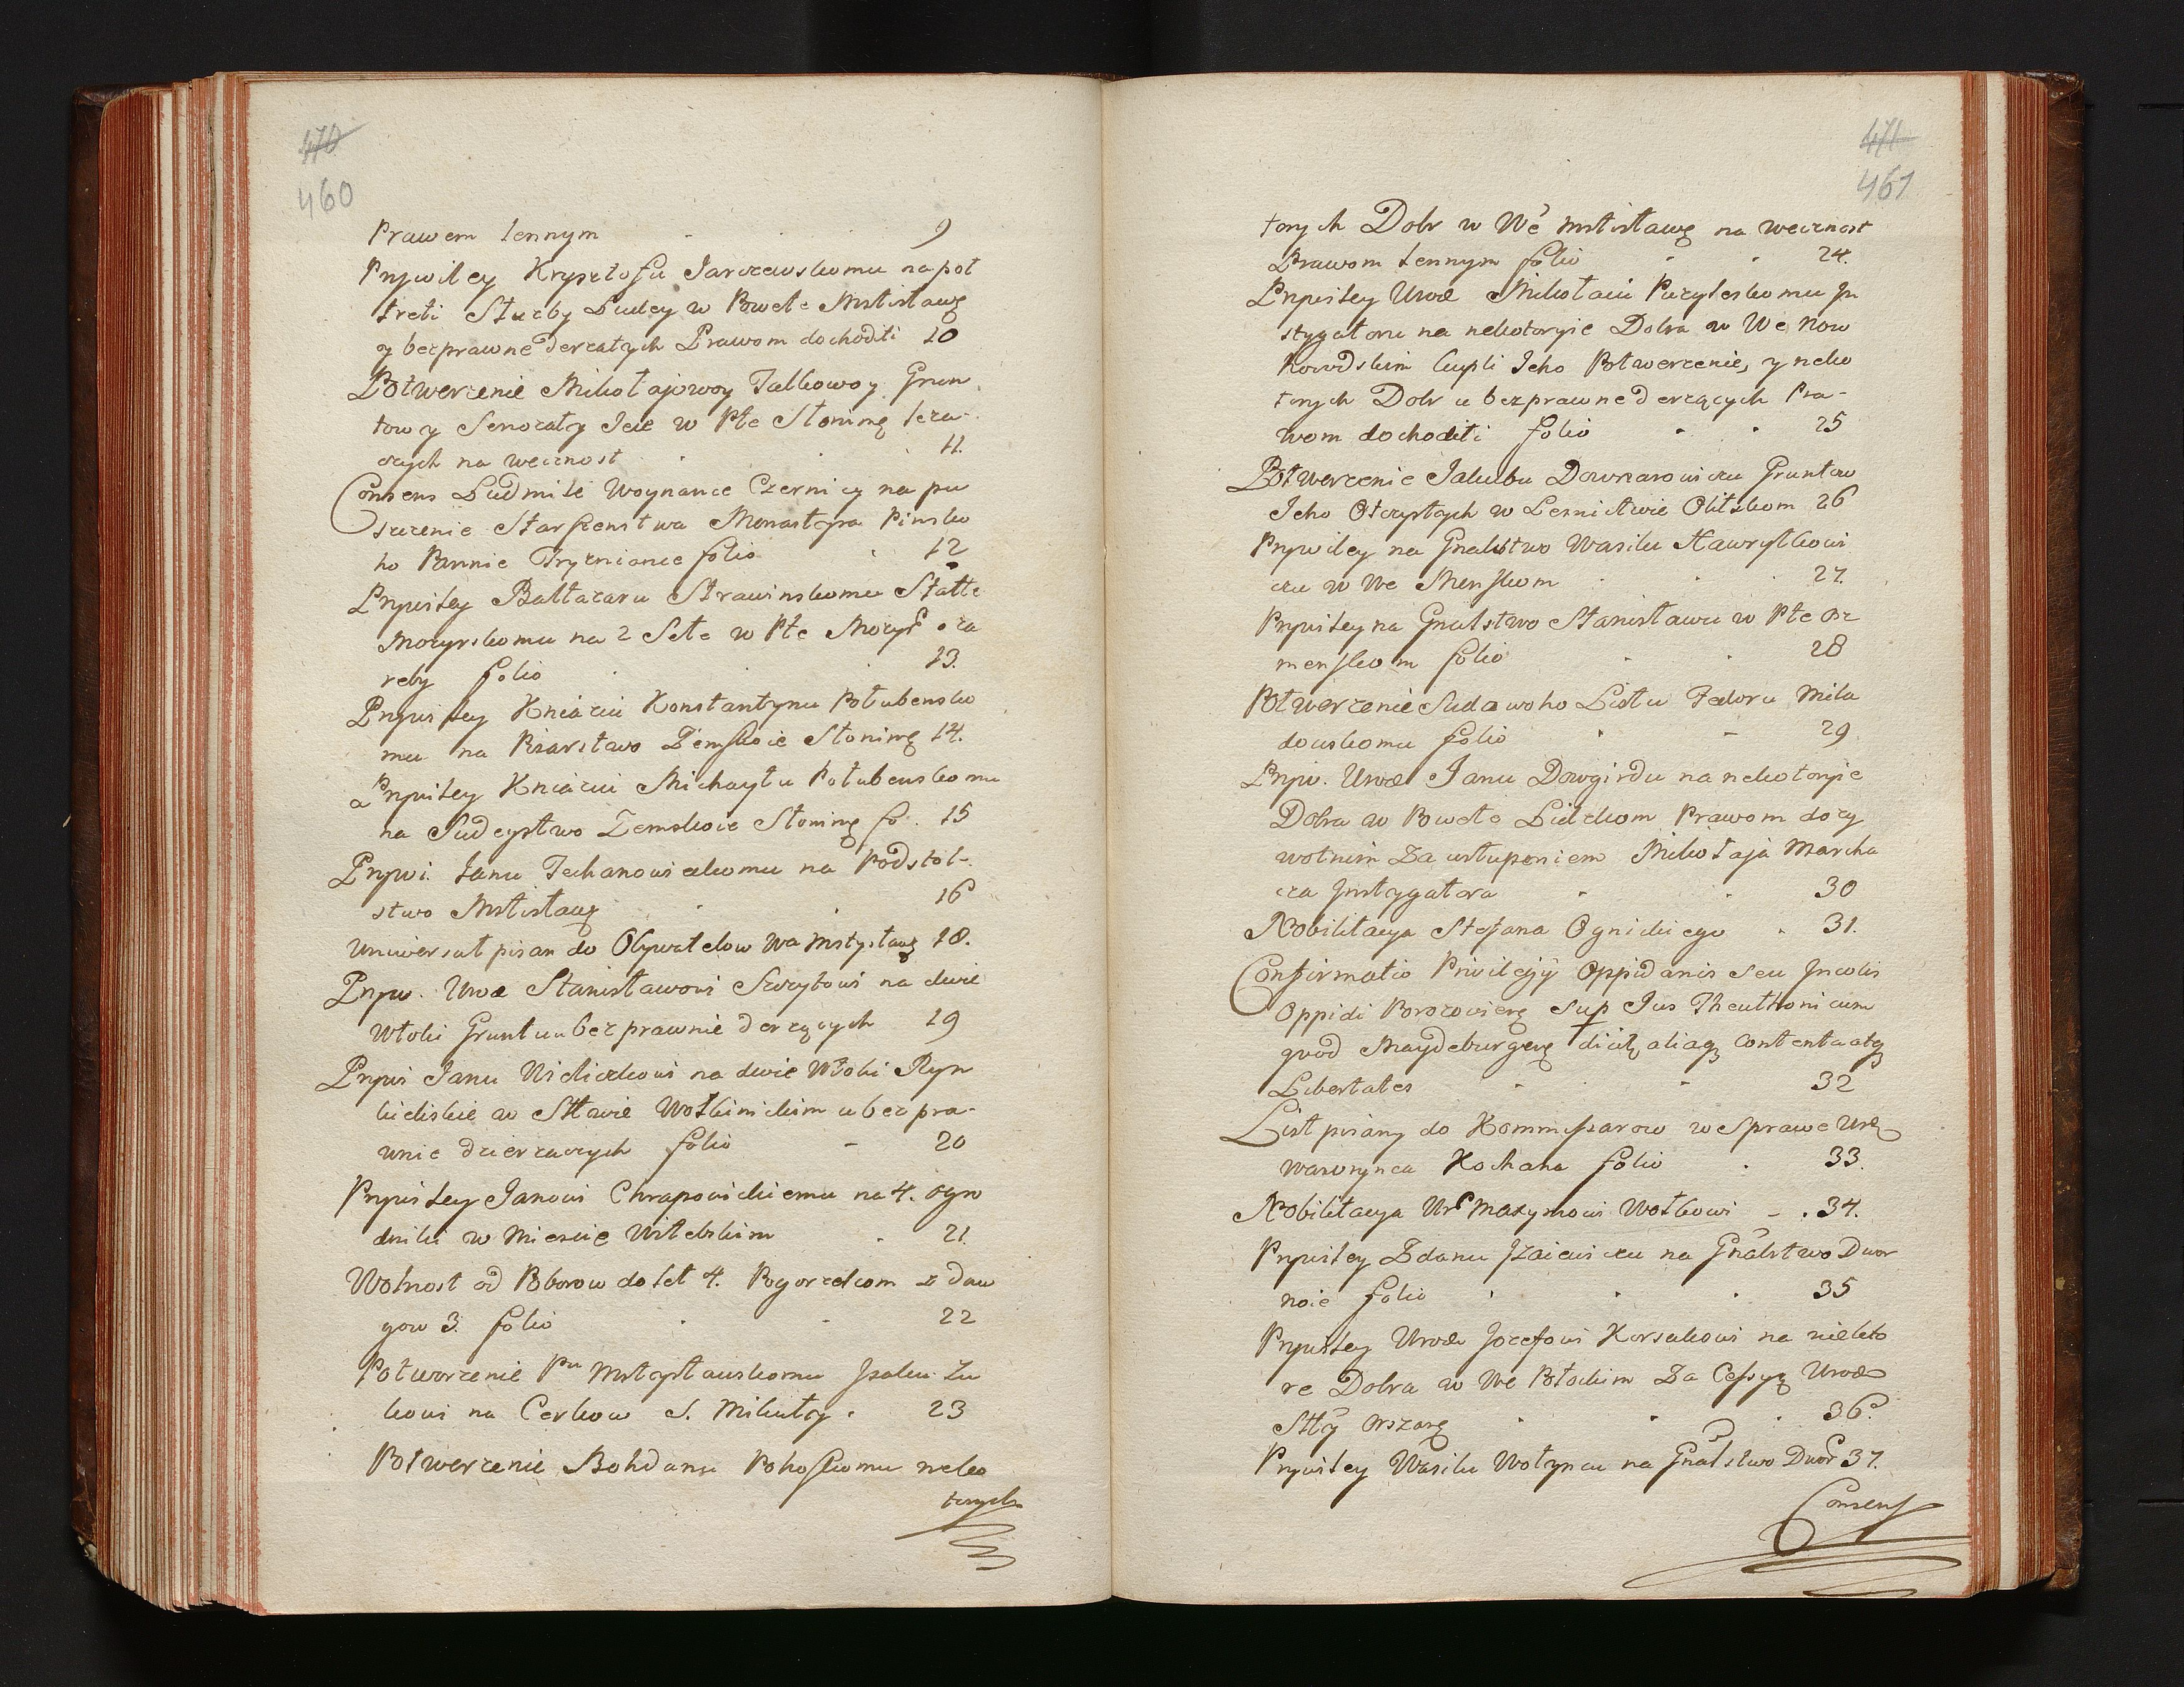 470
460
Prawem lennym 9
Prywiley Krysztofu Jarczewskomu na poł
treti Służby Ludey w Powete Mstisławę
y bezprawne derżałych Prawom dochoditi 10
Potwerżenie Mikołajowoy Jałkowoy Grun
tow y Senożaty Jeie w Pte Słonimę leża-
cych na wecznost 11.
Consens Ludmile Woynance Czernicy na pu
szczenie Starszenstwa Monastyra Pinsko
ho Pannie Tryzniance folio 12
Prywiley Baltazaru Strawinskomu Stałte
Mozyrskomu na 2 Sete w Pte Mozyr° oza
reby folio 13.
Prywiley Kniaziu Konstantynu Połubensko
mu na Pisarstwo Zemskoie Słonimę 14.
Prywiley Kniaziu Michayłu Połubenskomu
na Sudeystwo Zemskoie Słonimę fo. 15
Prywi. Janu Techanowieckomu na Podstol-
stwo Mstisławę 16
Uniwersał pisan do Obywatelow Wa Mstysławę 18.
Pryw. Uroe Stanisławowi Szczytowi na dwie
Włoki Gruntu u bezprawnie derżących 19
Prywi Janu Nieliczkowi na dwie Włoki Ryn
kieliskie w Sttwie Wołkinickim u bezpra-
wnie dzierżaczych folio 20
Prywiley Janowi Chrapowickiemu na 4. ogro
dniki w Miescie Witebskim 21
Wolnost od Poborow do let 4. Pogorelcom z Daw
gow 3. folio 22
Potworzenie Pu Mstysławskomu Jzaku Zu
kowi na Cerkow S. Mikuły 23
Potwerżenie Bohdanu Pohoskomu neko
torych
471
461
torych Dobr w We Mstisławę na wecznost
Prawom lennym folio 24.
Prywiley Uroe Mikołaiu Puzyleskomu Jn
stygatoru na nekotoryie Dobra w We Now
horodskim kupli Jeho Potwerżenie, y neko
torych Dobr u bezprawne derżących Pra-
wom dochoditi folio 25
Potwerżenie Jakubu Downarowiczu Gruntow
Jeho Otczystych w Lesnictwie Olitskom 26
Prywiley na Gnalstwo Wasilu Hawryłkowi
czu w We Menskom 27.
Prywiley na Gnalstwo Stanisławu w Pte Osz
menskom folio 28
Potwerżenie Sudowoho Listu Fedoru Mila
dowskomu folio 29
Pryw. Uroe Janu Dowgirdu na nekotoryie
Dobra w Powete Lidzkom Prawom doży
wotnim Za ustupeniem Mikołaja Marcha
cza Jnstygatora 30
Nobilitacya Stefana Ognickiego 31.
Confirmatio Privilegÿ Oppidanis seu Jncolis
Oppidi Borozowienę Sup Jus Theuthonicum
quod Maydeburgenę dicit, aliaq contenta atq
Libertates 32
List pisany do Kommissarow w Sprawe Urę
Wawrynca Kochana folio 33.
Nobilitacya Ur° Maxymowi Wołkowi 34.
Prywiley Zdanu Jzaiewiczu na Gnalstwo Dwor
noie folio 35
Prywiley Uroe Jozefowi Korsakowi na niekto
re Dobra w We Połockim Za Cessyą Uroe
Stty Orszanę 36.
Prywiley Wasilu Wołyncu na Gnalstwo Dwor 37.
Consens